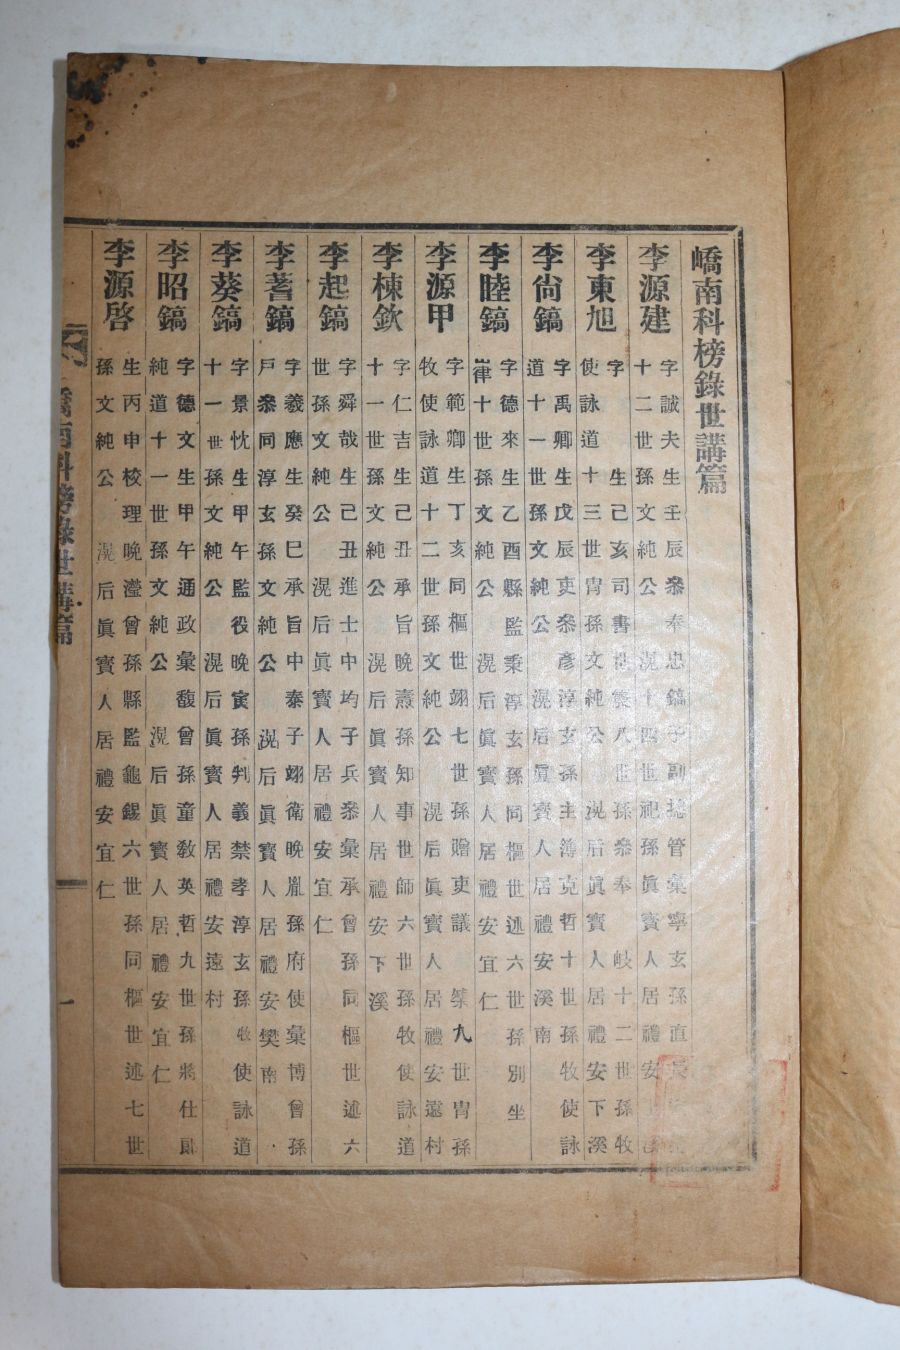 嶠南科榜錄世講篇
李源建
字誠夫生壬辰參奉忠鎬子副摠管彙寧玄孫直
十二世孫文純公滉十四世祀孫眞寶人居禮安
李東旭
字 生己亥司書 八世孫參奉 岐十二世孫牧
使詠道十三世冑孫文純公滉后眞寶人居禮安下溪
李尙鎬
字禹卿生戊辰吏參彥淳玄孫主簿克哲十世孫牧使詠
道十一世孫文純公滉后眞寶人居禮安溪南
李睦鎬
字德來生乙酉縣監秉淳玄孫同樞世述六世孫別坐
嵂十世孫文純公滉后眞寶人居禮安宜仁
李源甲
字範卿生丁亥同樞世翊七世孫贈吏議榘九世冑孫
牧使詠道十二世孫文純公滉后眞寶人居禮安遠村
李棟欽
字仁吉生己丑承旨晚燾孫知事世師六世孫牧使詠道
十一世孫文純公滉后眞寶人居禮安下溪
李起鎬
字舜哉生己丑進士中均子兵參彙承曾孫同樞世述六
世孫文純公滉后眞寶人居禮安宜仁
李蓍鎬
字羲應生癸巳承旨中泰子翊衛晚胤孫府使彙博曾孫
戶參同淳玄孫文純公滉后眞寶人居禮安樊南
李葵鎬
字景忱生甲午監役晚寅孫判義禁孝淳玄孫牧使詠道
十一世孫文純公滉后眞寶人居禮安遠村
李昭鎬
字德文生甲午通政彙馥曾孫童敎英哲九世孫將仕郞
純道十一世孫文純公滉后眞寶人居禮安宜仁
李源啓
生丙申校理晚瀅曾孫縣監龜錫六世孫同樞世述七世
孫文純公滉后眞寶人居禮安宜仁
嶠南科榜錄世講篇
一